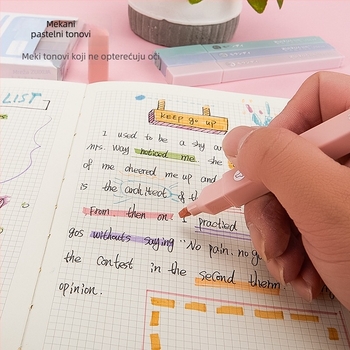 Mekani
pastelni tonovi
Meki tonovi koji ne opterećuju oči
LIST
keep go up
I used to be a shy
mrs. Way noticed me she
of me cheered me up and
is the architect of th
From then on I practied
gos withouts saying "No pain. no g
the contest in the second them
opinion.